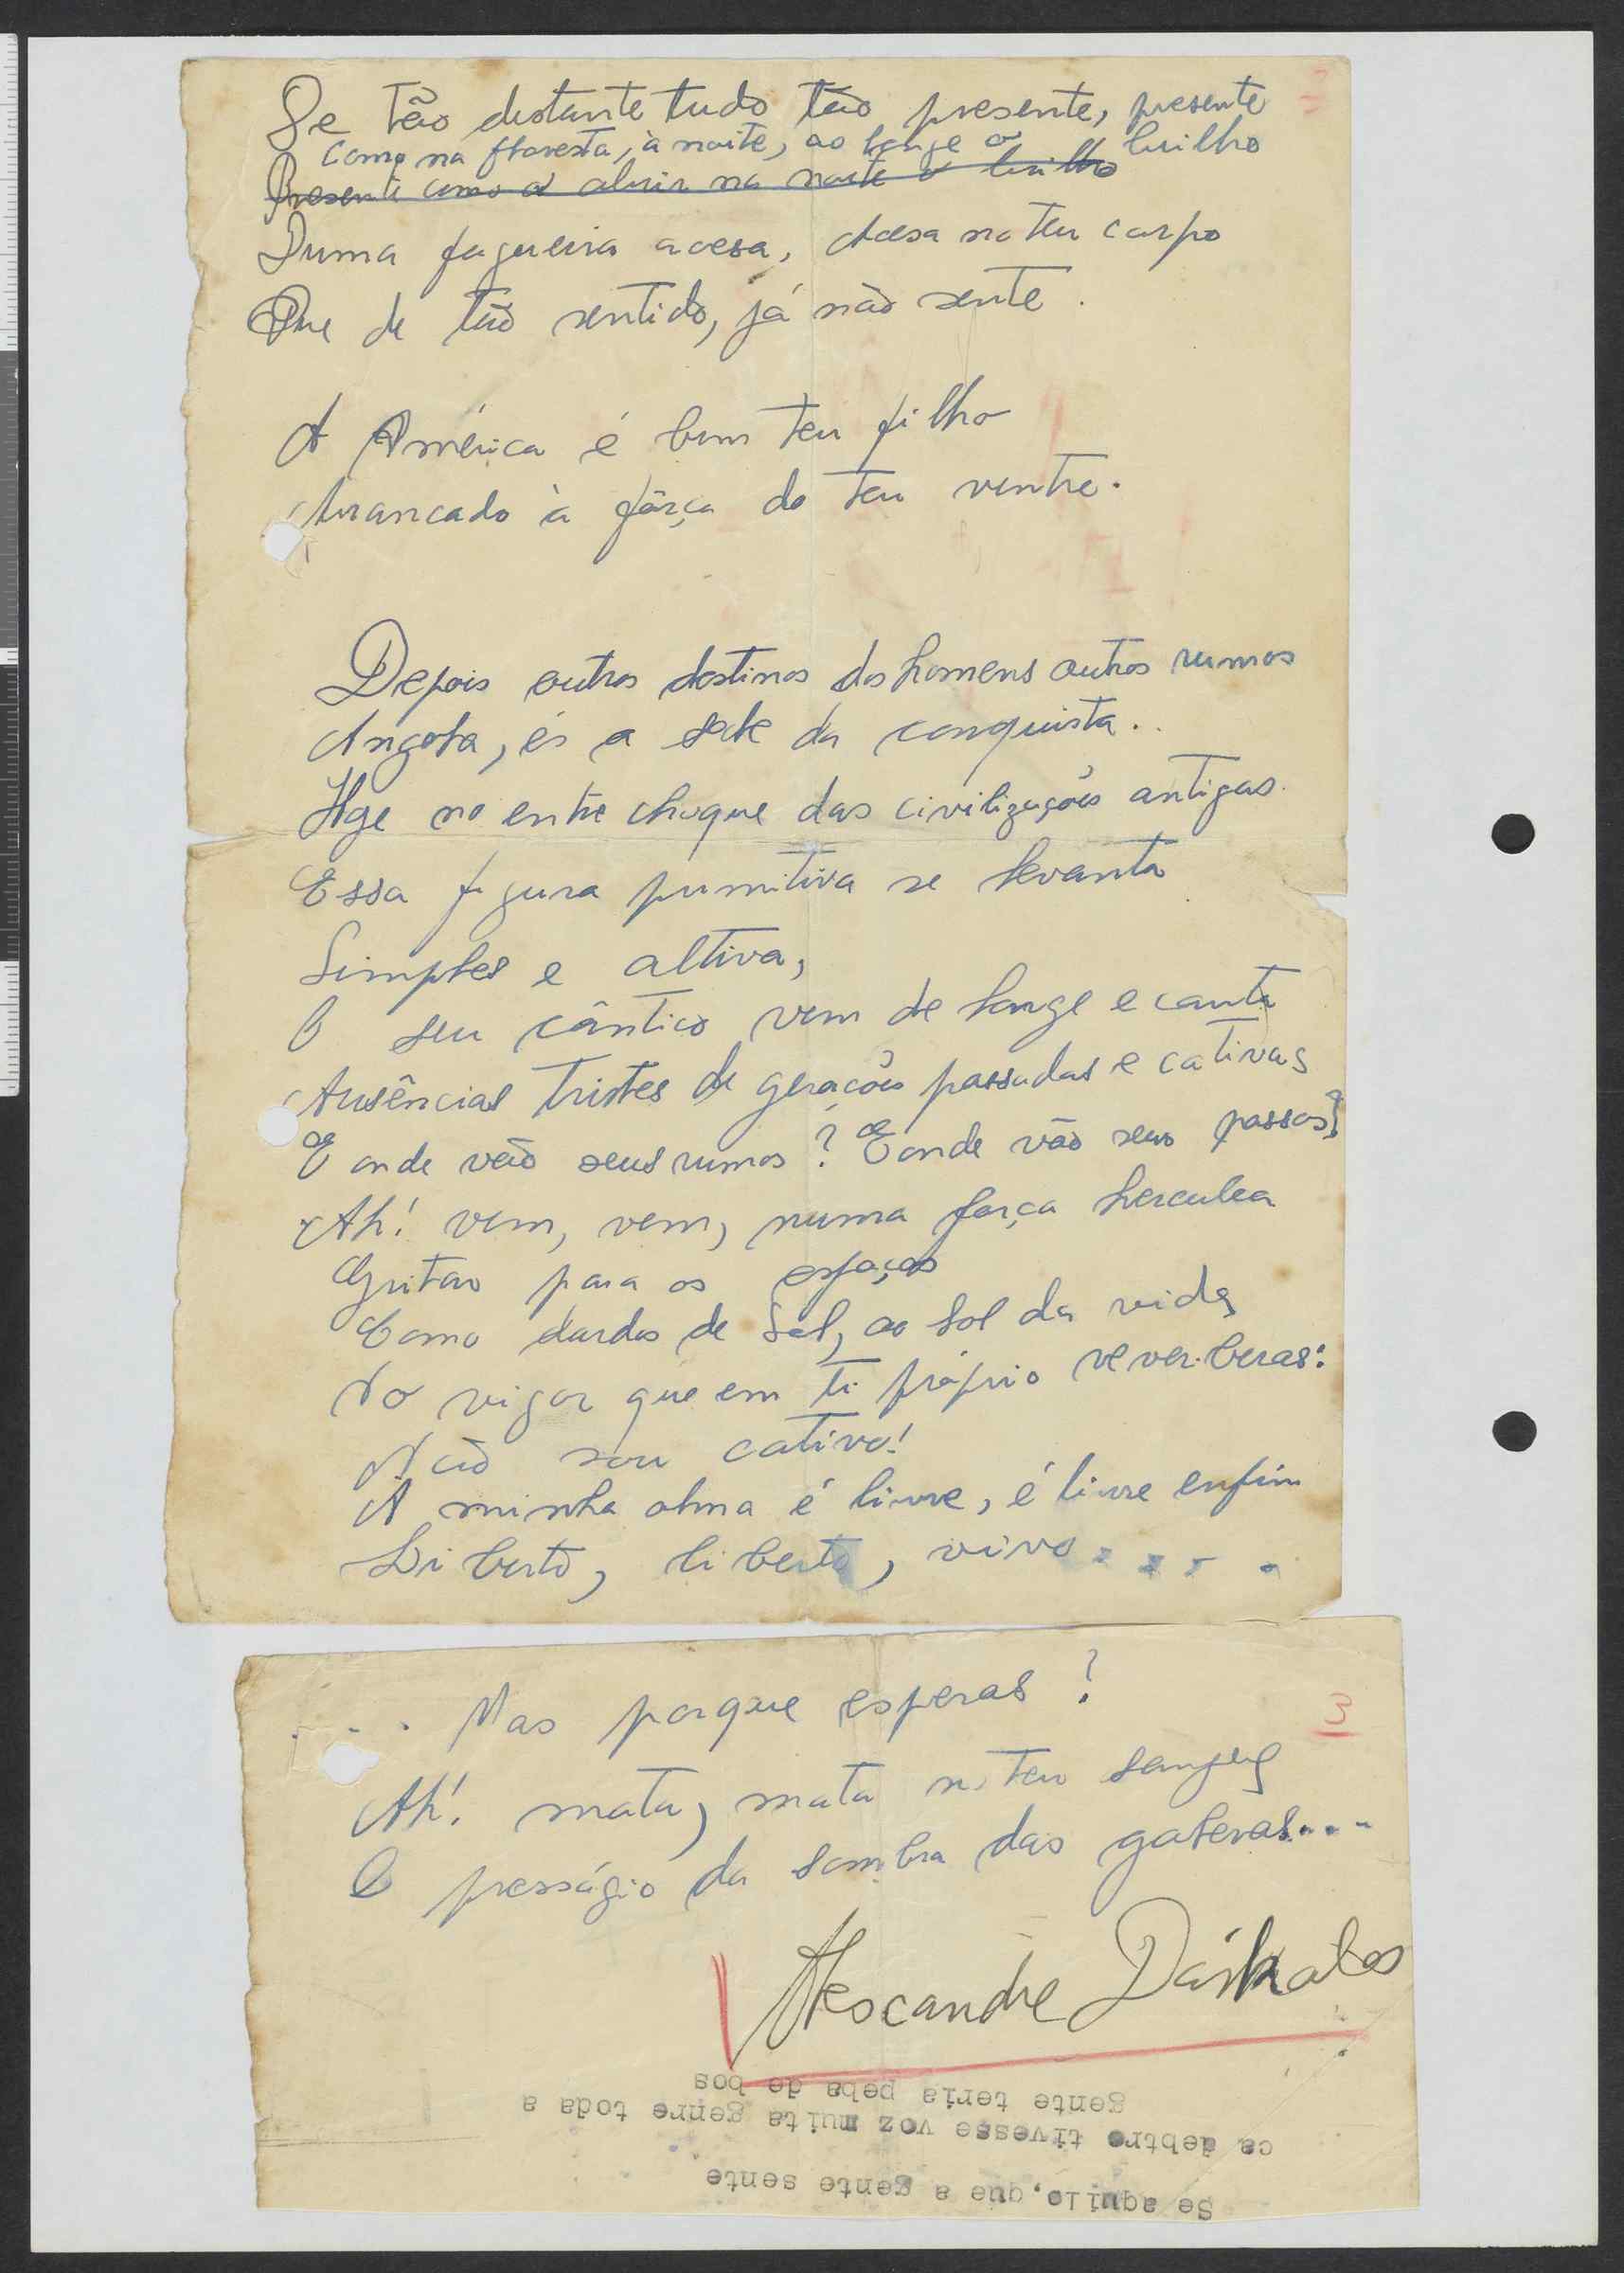 De tão distante tudo tão presente, presente
Como na floresta, à noite, ao longe o brilho
Presente como a abrir na noite o brilho
Duma fogueira acesa, Acesa no teu corpo
Que de tão sentido, já não sente.
A América é bem teu filho
Arrancado à fôrça do teu ventre.
Depois outros destinos dos homens outros rumos
Angola, és a sede da conquista..
Hoje no entre choque das civilizações antigas.
Essa figura primitiva se levanta
Simples e altiva,
O seu cântico vem de longe e canta
Ausências tristes de gerações passadas e cativas
E onde vão seus rumos? E onde vão seus passos?
Ah! vem, vem, numa força herculea
Gritar para os espaços
Como dardos de Sol, ao sol da vida
No vigor que em ti próprio reverberas:
Não sou cativo!
A minha alma é livre, é livre enfim
Liberto, liberto, vivo.....
... Mas porque esperas?
3
Ah! mata, mata no teu sangue
O presságio da sombra das galeras....
Alexandre Dáskalos
Se aquilo,que a gente sente
ca debtro tivesse voz muita genre toda a
gente teria peba de bos